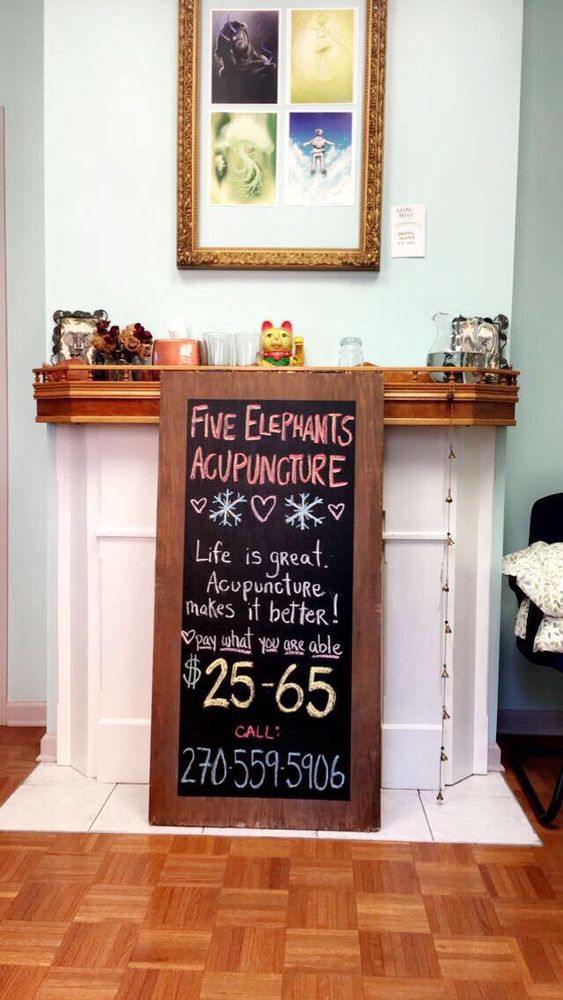 LOCAL
FIVE ELEPHANTS
ACUPUNCTURE
Life is great.
Acupuncture
makes it better!
pay what you are able
$25-65
CALL:
270.559.5906